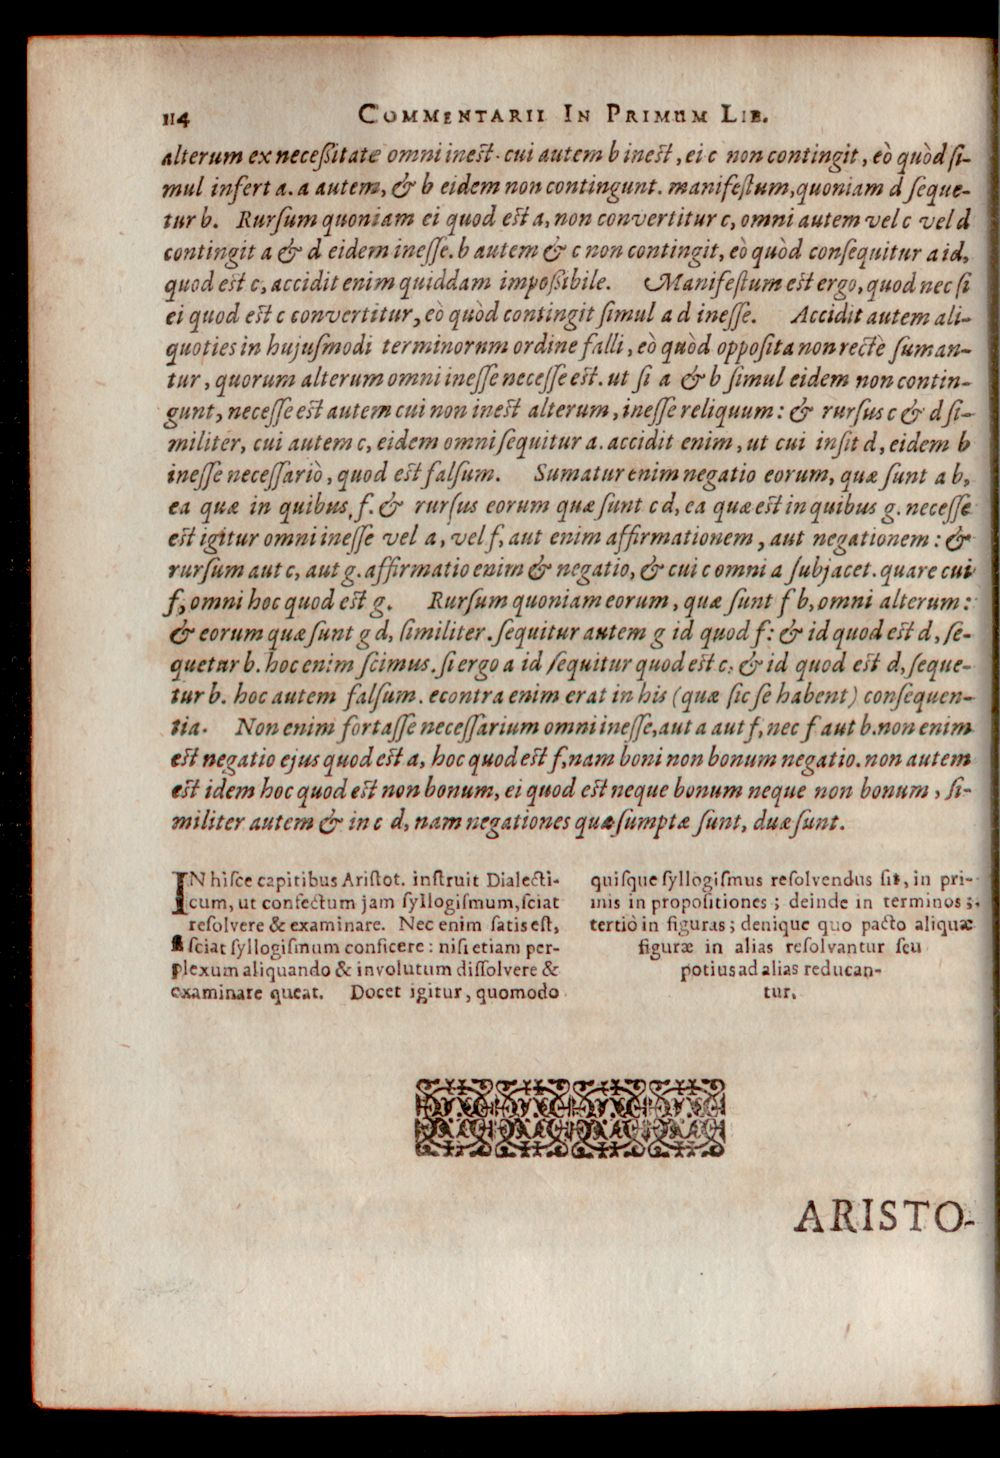 114 COMMENTARII IN PRIMUM LIB.
alterum ex neceßitate omni inest. cui autem b inest, ei c non contingit, eò quòd ſi-
mul infert a. a autem, & b eidem non contingunt. manifeſtum, quoniam d ſeque-
tur b. Rurſum quoniam ei quod est a, non convertitur c, omni autem vel c vel d
contingit a & d eidem ineſſe. b autem & c non contingit, eò quòd conſequitur a id,
quod est c, accidit enim quiddam impoßibile. Manifeſtum est ergo, quod nec ſi
ei quod est c convertitur, eò quòd contingit ſimul a d ineſſe. Accidit autem ali-
quoties in hujuſmodi terminorum ordine falli, eò quòd oppoſita non recte ſuman-
tur, quorum alterum omni ineſſe neceſſe est. ut ſi a & b ſimul eidem non contin-
gunt, neceſſe est autem cui non inest alterum, ineſſe reliquum: & rurſus c & d ſi-
militer, cui autem c, eidem omni ſequitur a. accidit enim, ut cui inſit d, eidem b
ineſſe neceſſariò, quod est falſum. Sumatur enim negatio eorum, quæ ſunt a b,
ea quæ in quibus, f. & rurſus eorum quæ ſunt c d, ea quæ est in quibus g. neceſſe
est igitur omni ineſſe vel a, vel f, aut enim affirmationem, aut negationem: &
rurſum aut c, aut g. affirmatio enim & negatio, & cui c omni a ſubjacet. quare cui
f, omni hoc quod est g. Rurſum quoniam eorum, quæ ſunt f b, omni alterum:
& eorum quæ ſunt g d, ſimiliter. ſequitur autem g id quod f: & id quod est d, ſe-
quetur b. hoc enim ſcimus. ſi ergo a id ſequitur quod est c, & id quod est d, ſeque-
tur b. hoc autem falſum. econtra enim erat in his (quæ ſic ſe habent) conſequen-
tia. Non enim fortaſſe neceſſarium omni ineſſe, aut a aut f, nec f aut b. non enim
est negatio ejus quod est a, hoc quod est f, nam boni non bonum negatio. non autem
est idem hoc quod est non bonum, ei quod est neque bonum neque non bonum, ſi-
militer autem & in c d, nam negationes quæ ſumptæ ſunt, duæ ſunt.
IN hiſce capitibus Ariſtot. inſtruit Dialecti-
cum, ut confectum jam ſyllogiſmum, ſciat
reſolvere & examinare. Nec enim ſatis eſt,
ſciat ſyllogiſmum conficere: niſi etiam per-
plexum aliquando & involutum diſſolvere &
examinare queat. Docet igitur, quomodo
quiſque ſyllogiſmus reſolvendus ſit, in pri-
mis in propoſitiones; deinde in terminos;
tertiò in figuras; denique quo pacto aliquæ
figuræ in alias reſolvantur ſeu
potius ad alias reducan-
tur.
ARISTO-